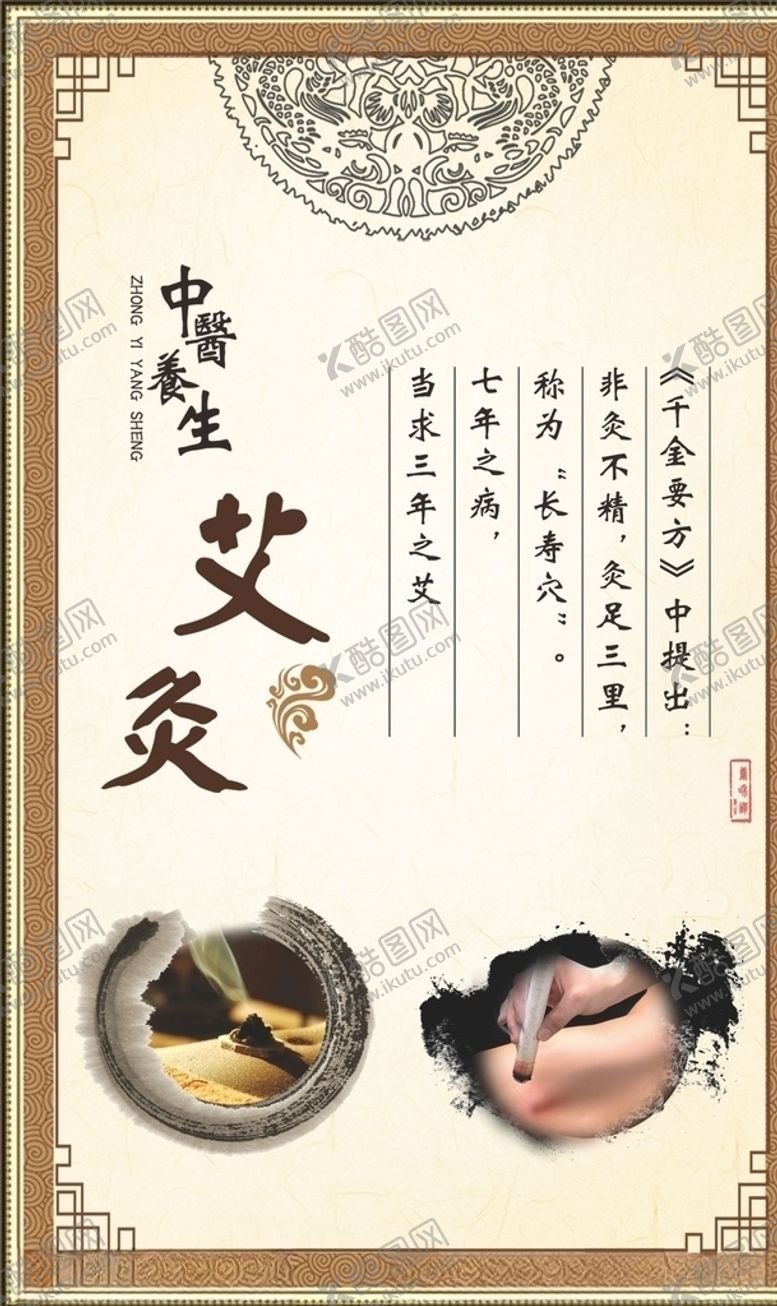 中醫養生
ZHONG YI YANG SHENG
艾灸
《千金要方》中提出：
非灸不精，灸足三里，
称为“长寿穴”。
七年之病，
当求三年之艾
酷图网
www.ikutu.com